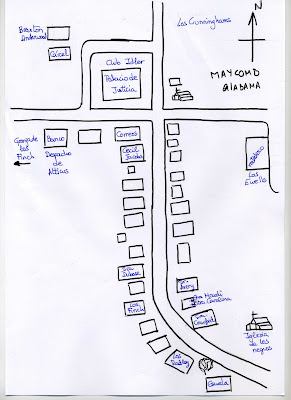 Braxton
Underwood
Cárcel
Los Cunninghams
N
Club Idler
Palacio de
Justicia
MAYCOMB
ALABAMA
Granja de
los
Finch
Banco
Despacho
de
Atticus
Correos
Cecil
Jacobs
Los
Ewells
Sra
Dubose
Los Finch
Avery
Sra Maudi
Srta Carolina
Crawford
Iglesia
de los
negros
Los
Radley
Escuela